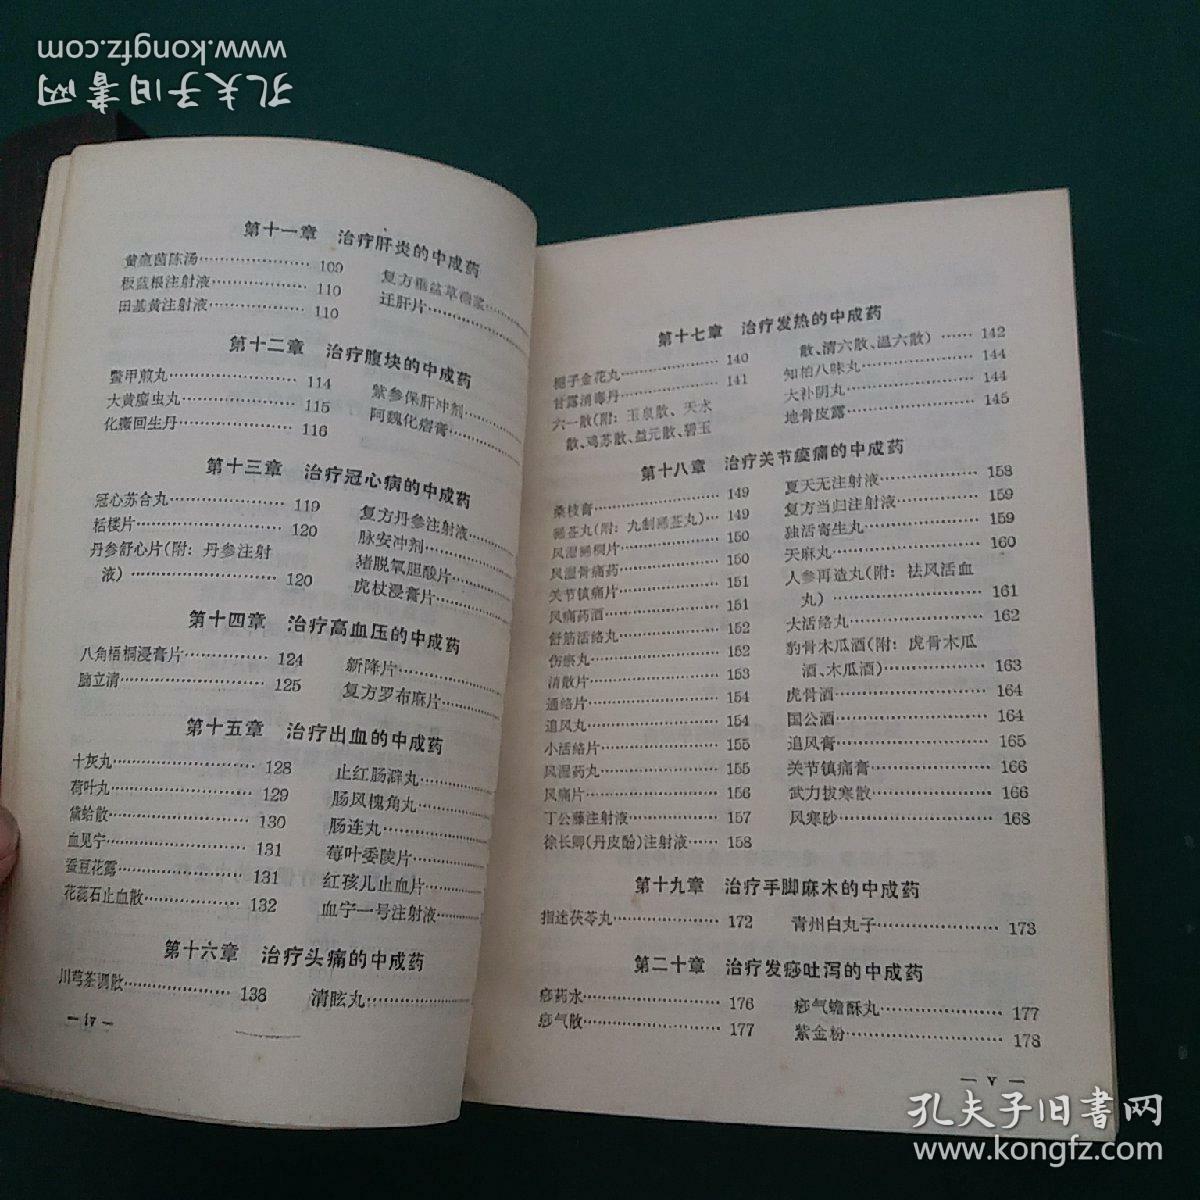 www.kongfz.com
孔夫子旧書网
第十一章 治疗肝炎的中成药
黄疸茵陈汤 109
板蓝根注射液 110
田基黄注射液 110
复方垂盆草糖浆
迁肝片
第十二章 治疗腹块的中成药
鳖甲煎丸 114
大黄䗪虫丸 115
化癥回生丹 116
紫参保肝冲剂
阿魏化痞膏
第十三章 治疗冠心病的中成药
冠心苏合丸 119
栝楼片 120
丹参舒心片(附：丹参注射
液) 120
复方丹参注射液
脉安冲剂
猪脱氧胆酸片
虎杖浸膏片
第十四章 治疗高血压的中成药
八角梧桐浸膏片 124
脑立清 125
新降片
复方罗布麻片
第十五章 治疗出血的中成药
十灰丸 128
荷叶丸 129
黛蛤散 130
血见宁 131
蚕豆花露 131
花蕊石止血散 132
止红肠澼丸
肠风槐角丸
肠连丸
莓叶委陵片
红孩儿止血片
血宁一号注射液
第十六章 治疗头痛的中成药
川芎茶调散 138
清眩丸
— iv —
第十七章 治疗发热的中成药
栀子金花丸 140
甘露消毒丹 141
六一散(附：玉泉散、天水
散、鸡苏散、益元散、碧玉
散、清六散、温六散) 142
知柏八味丸 144
大补阴丸 144
地骨皮露 145
第十八章 治疗关节痠痛的中成药
桑枝膏 149
豨莶丸(附：九制豨莶丸) 149
风湿豨桐片 150
风湿骨痛药 150
关节镇痛片 151
风痛药酒 151
舒筋活络丸 152
伤瘀丸 152
清散片 153
通络片 154
追风丸 154
小活络片 155
风湿药丸 155
风痛片 156
丁公藤注射液 157
徐长卿(丹皮酚)注射液 158
夏天无注射液 158
复方当归注射液 159
独活寄生丸 159
天麻丸 160
人参再造丸(附：祛风活血
丸) 161
大活络丸 162
豹骨木瓜酒(附：虎骨木瓜
酒、木瓜酒) 163
虎骨酒 164
国公酒 164
追风膏 165
关节镇痛膏 166
武力拔寒散 166
风寒砂 168
第十九章 治疗手脚麻木的中成药
指迷茯苓丸 172
青州白丸子 173
第二十章 治疗发痧吐泻的中成药
痧药水 176
痧气散 177
痧气蟾酥丸 177
紫金粉 178
— v —
孔夫子旧書网
www.kongfz.com